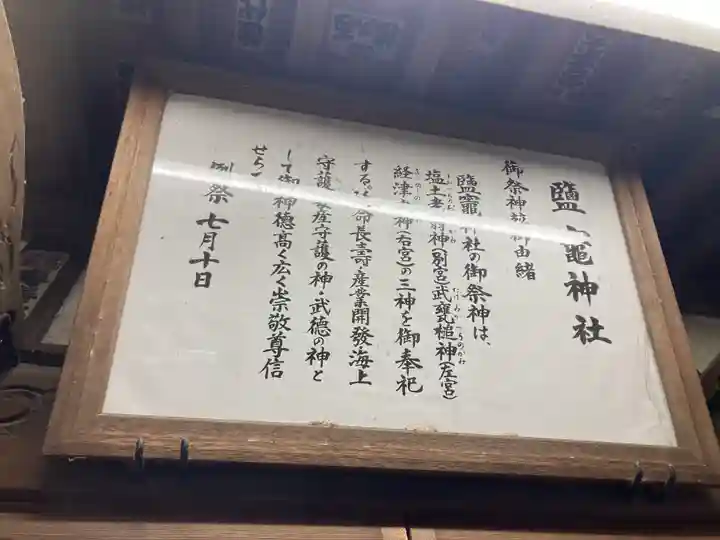 鹽竈神社
御祭神 御由緒
鹽竈神社の御祭神は、
塩土老翁神(別宮)武甕槌神(左宮)
経津主神(右宮)の三神を御奉祀
する。 命長寿・産業開發海上
守護 産守護の神・武徳の神と
して御神徳高く広く崇敬尊信
せら
例祭 七月十日